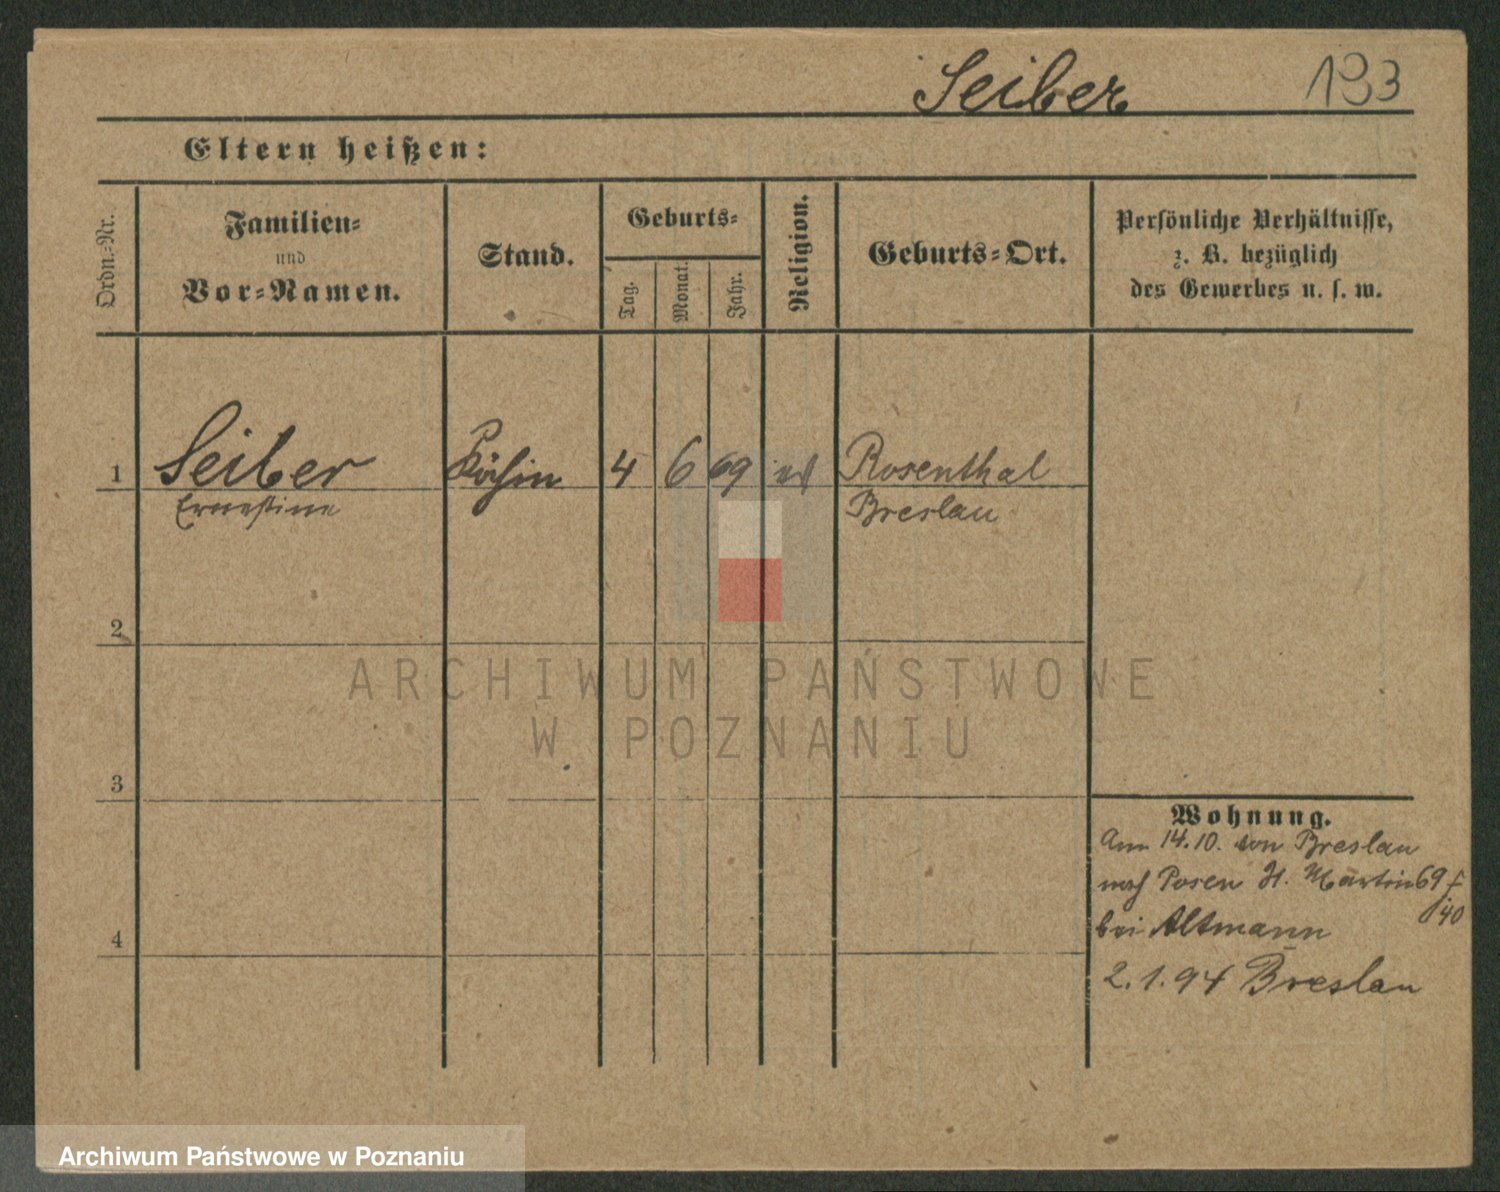 Seiber 133
Eltern heißen:
Ordn.-Nr.
Familien-
und
Vor-Namen.
Stand.
Geburts-
Tag.
Monat.
Jahr.
Religion.
Geburts-Ort.
Persönliche Verhältnisse,
z. B. bezüglich
des Gewerbes u. s. w.
1 Seiber Köchin 4 6 69 Rosenthal
Ernestine Breslau
2
3
4
Wohnung.
Am 14.10. von Breslau
nach Posen St. Martin 69
bei Altmann
2.1.94 Breslau
ARCHIWUM PAŃSTWOWE
W POZNANIU
Archiwum Państwowe w Poznaniu